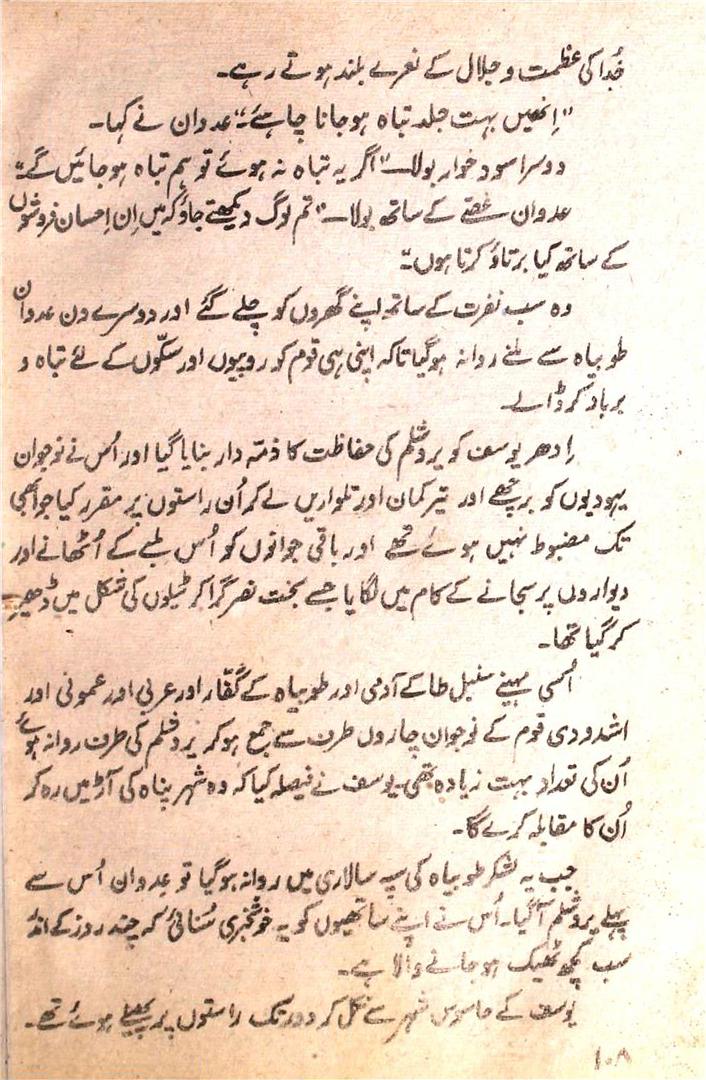 خُدا کی عظمت و جلال کے نعرے بلند ہوتے رہے۔
"اِنھیں بہت جلد تباہ ہو جانا چاہئے۔" عدوان نے کہا۔
دوسرا سود خوار بولا۔ "اگر یہ تباہ نہ ہوئے تو ہم تباہ ہو جائیں گے۔"
عدوان غصّے کے ساتھ بولا۔ "تم لوگ دیکھتے جاؤ کہ میں اِن اِحسان فروشوں
کے ساتھ کیا برتاؤ کرتا ہوں۔"
وہ سب نفرت کے ساتھ اپنے گھروں کو چلے گئے اور دوسرے دن عدوان
طوبیاہ سے ملنے روانہ ہو گیا تاکہ اپنی ہی قوم کو روپیوں اور سکّوں کے لئے تباہ و
برباد کر ڈالے۔
اِدھر یوسف کو یروشلم کی حفاظت کا ذمّہ دار بنایا گیا اور اُس نے نوجوان
یہودیوں کو برچھے اور تیر کمان اور تلواریں لے کر اُن راستوں پر مقرر کیا جو ابھی
تک مضبوط نہیں ہوئے تھے اور باقی جوانوں کو اُس ملبے کے اُٹھانے اور
دیواروں پر سجانے کے کام میں لگایا جسے بخت نصر گرا کر ٹیلوں کی شکل میں ڈھیر
کر گیا تھا۔
اُسی مہینے سنبل طا کے آدمی اور طوبیاہ کے کُفّار اور عربی اور عمونی اور
اشدودی قوم کے نوجوان چاروں طرف سے جمع ہو کر یروشلم کی طرف روانہ ہوئے
اُن کی تعداد بہت زیادہ تھی۔ یوسف نے فیصلہ کیا کہ وہ شہر پناہ کی آڑ میں رہ کر
اُن کا مقابلہ کرے گا۔
جب یہ لشکر طوبیاہ کی سپہ سالاری میں روانہ ہو گیا تو عدوان اُس سے
پہلے یروشلم آ گیا۔ اُس نے اپنے ساتھیوں کو یہ خوشخبری سُنائی کہ چند روز کے
سب کچھ ٹھیک ہو جانے والا ہے۔
یوسف کے جاسوس شہر سے نکل کر دور تک راستوں پر پھیلے ہوئے تھے۔
۱۰۸